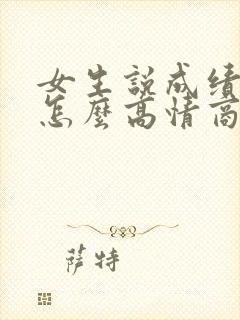 女生說成績
怎麼高情商
萨特